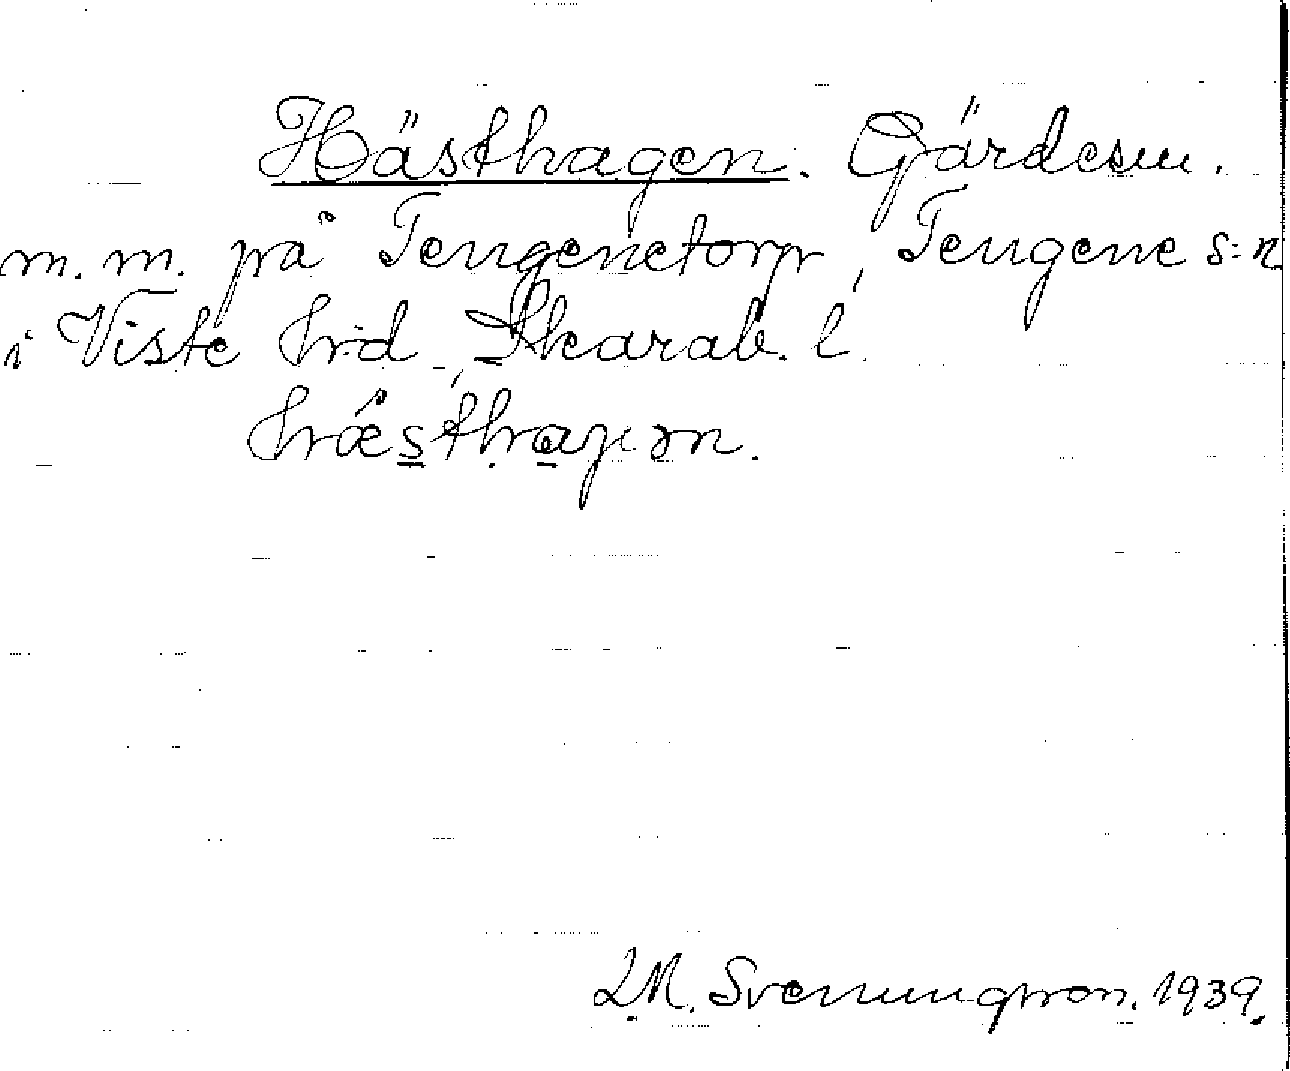 Hästhagen. Gärdesm.
m.m. på Tengenetorp, Tengene s:n
i Viste hrd, Skarab. l.
L.M. Svenungsson. 1939.